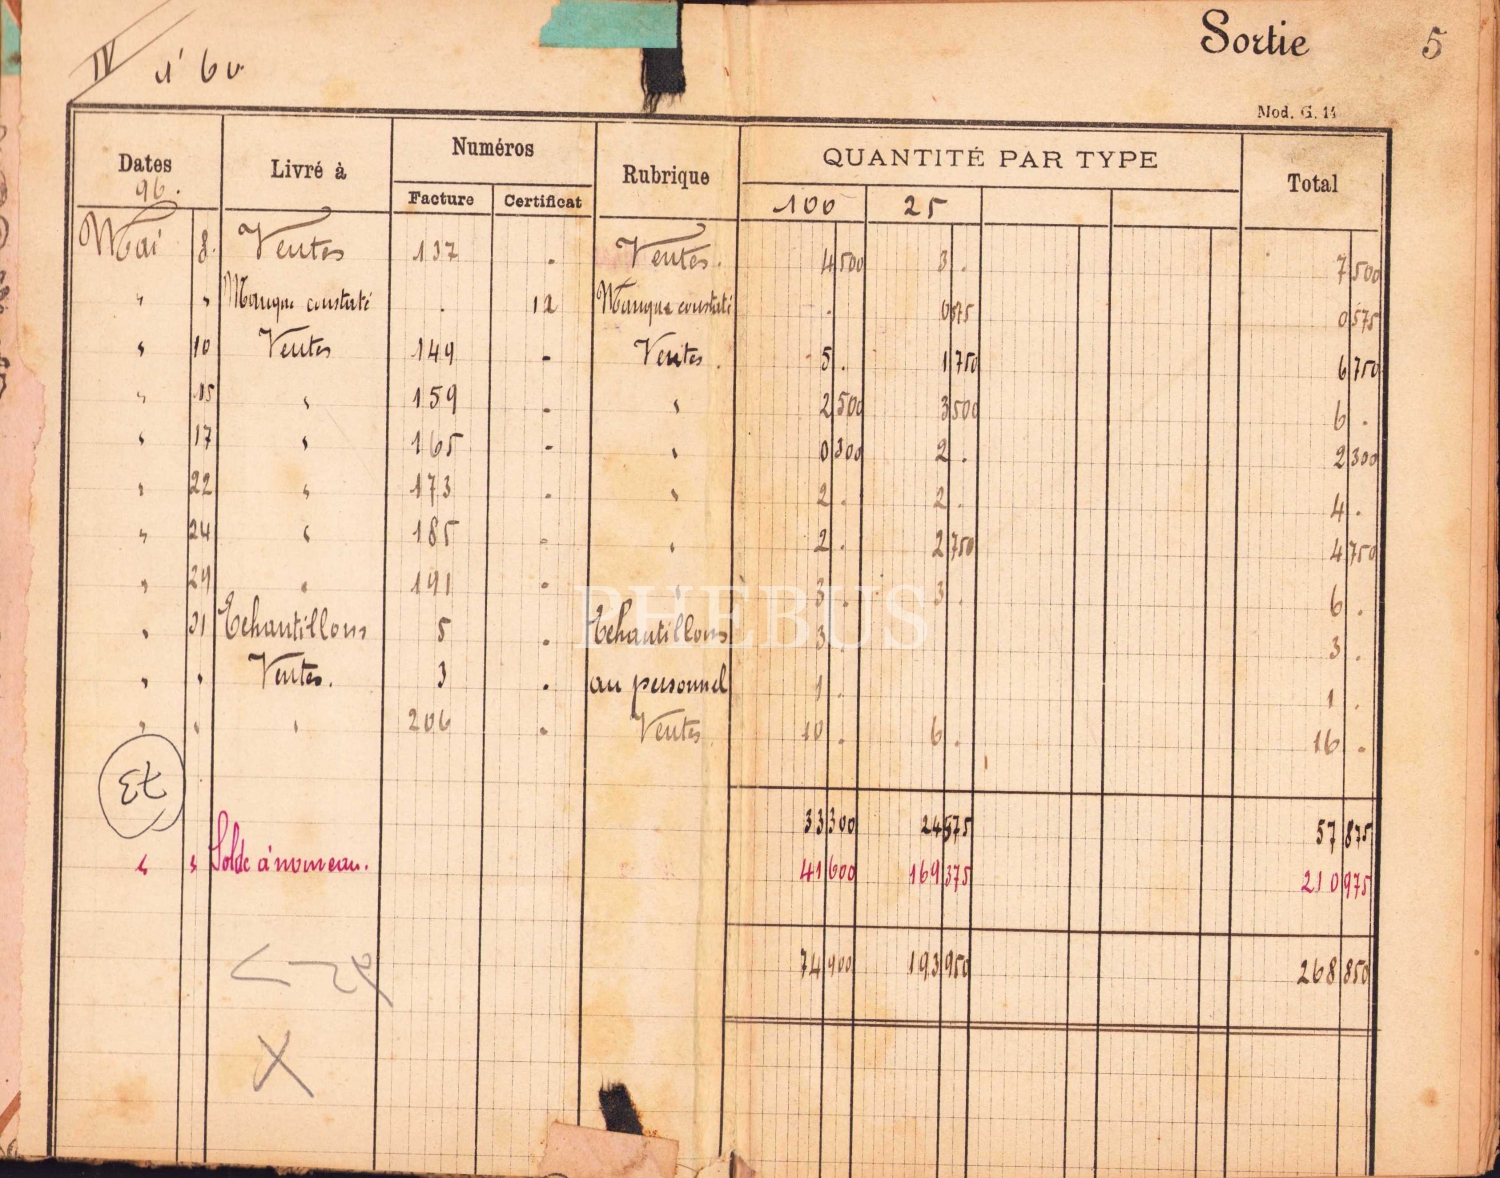 IV
Sortie 5
Mod. G. 14
Dates Livré à Numéros Rubrique QUANTITÉ PAR TYPE Total
Facture Certificat
96. 100 25
Mai 8. Ventes 137 . Ventes. 4 500 3 . 7 500
" " Manque constaté . 12 Manque constaté . 0 575 0 575
" 10 Ventes 149 - Ventes. 5 . 1 750 6 750
" 15 " 159 - " 2 500 3 500 6 .
" 17 " 165 - " 0 300 2 . 2 300
" 22 " 173 - " 2 . 2 . 4 .
" 24 " 185 - " 2 . 2 750 4 750
" 29 " 191 - " 3 . 3 . 6 .
" 31 Echantillons 5 . Echantillons 3 3 .
" " Ventes. 3 . au personnel 1 . 1 .
" " " 206 . Ventes. 10 . 6 . 16 .
33 300 24 575 57 875
" " Solde à nouveau. 41 600 169 375 210 975
74 900 193 950 268 850
PHEBUS